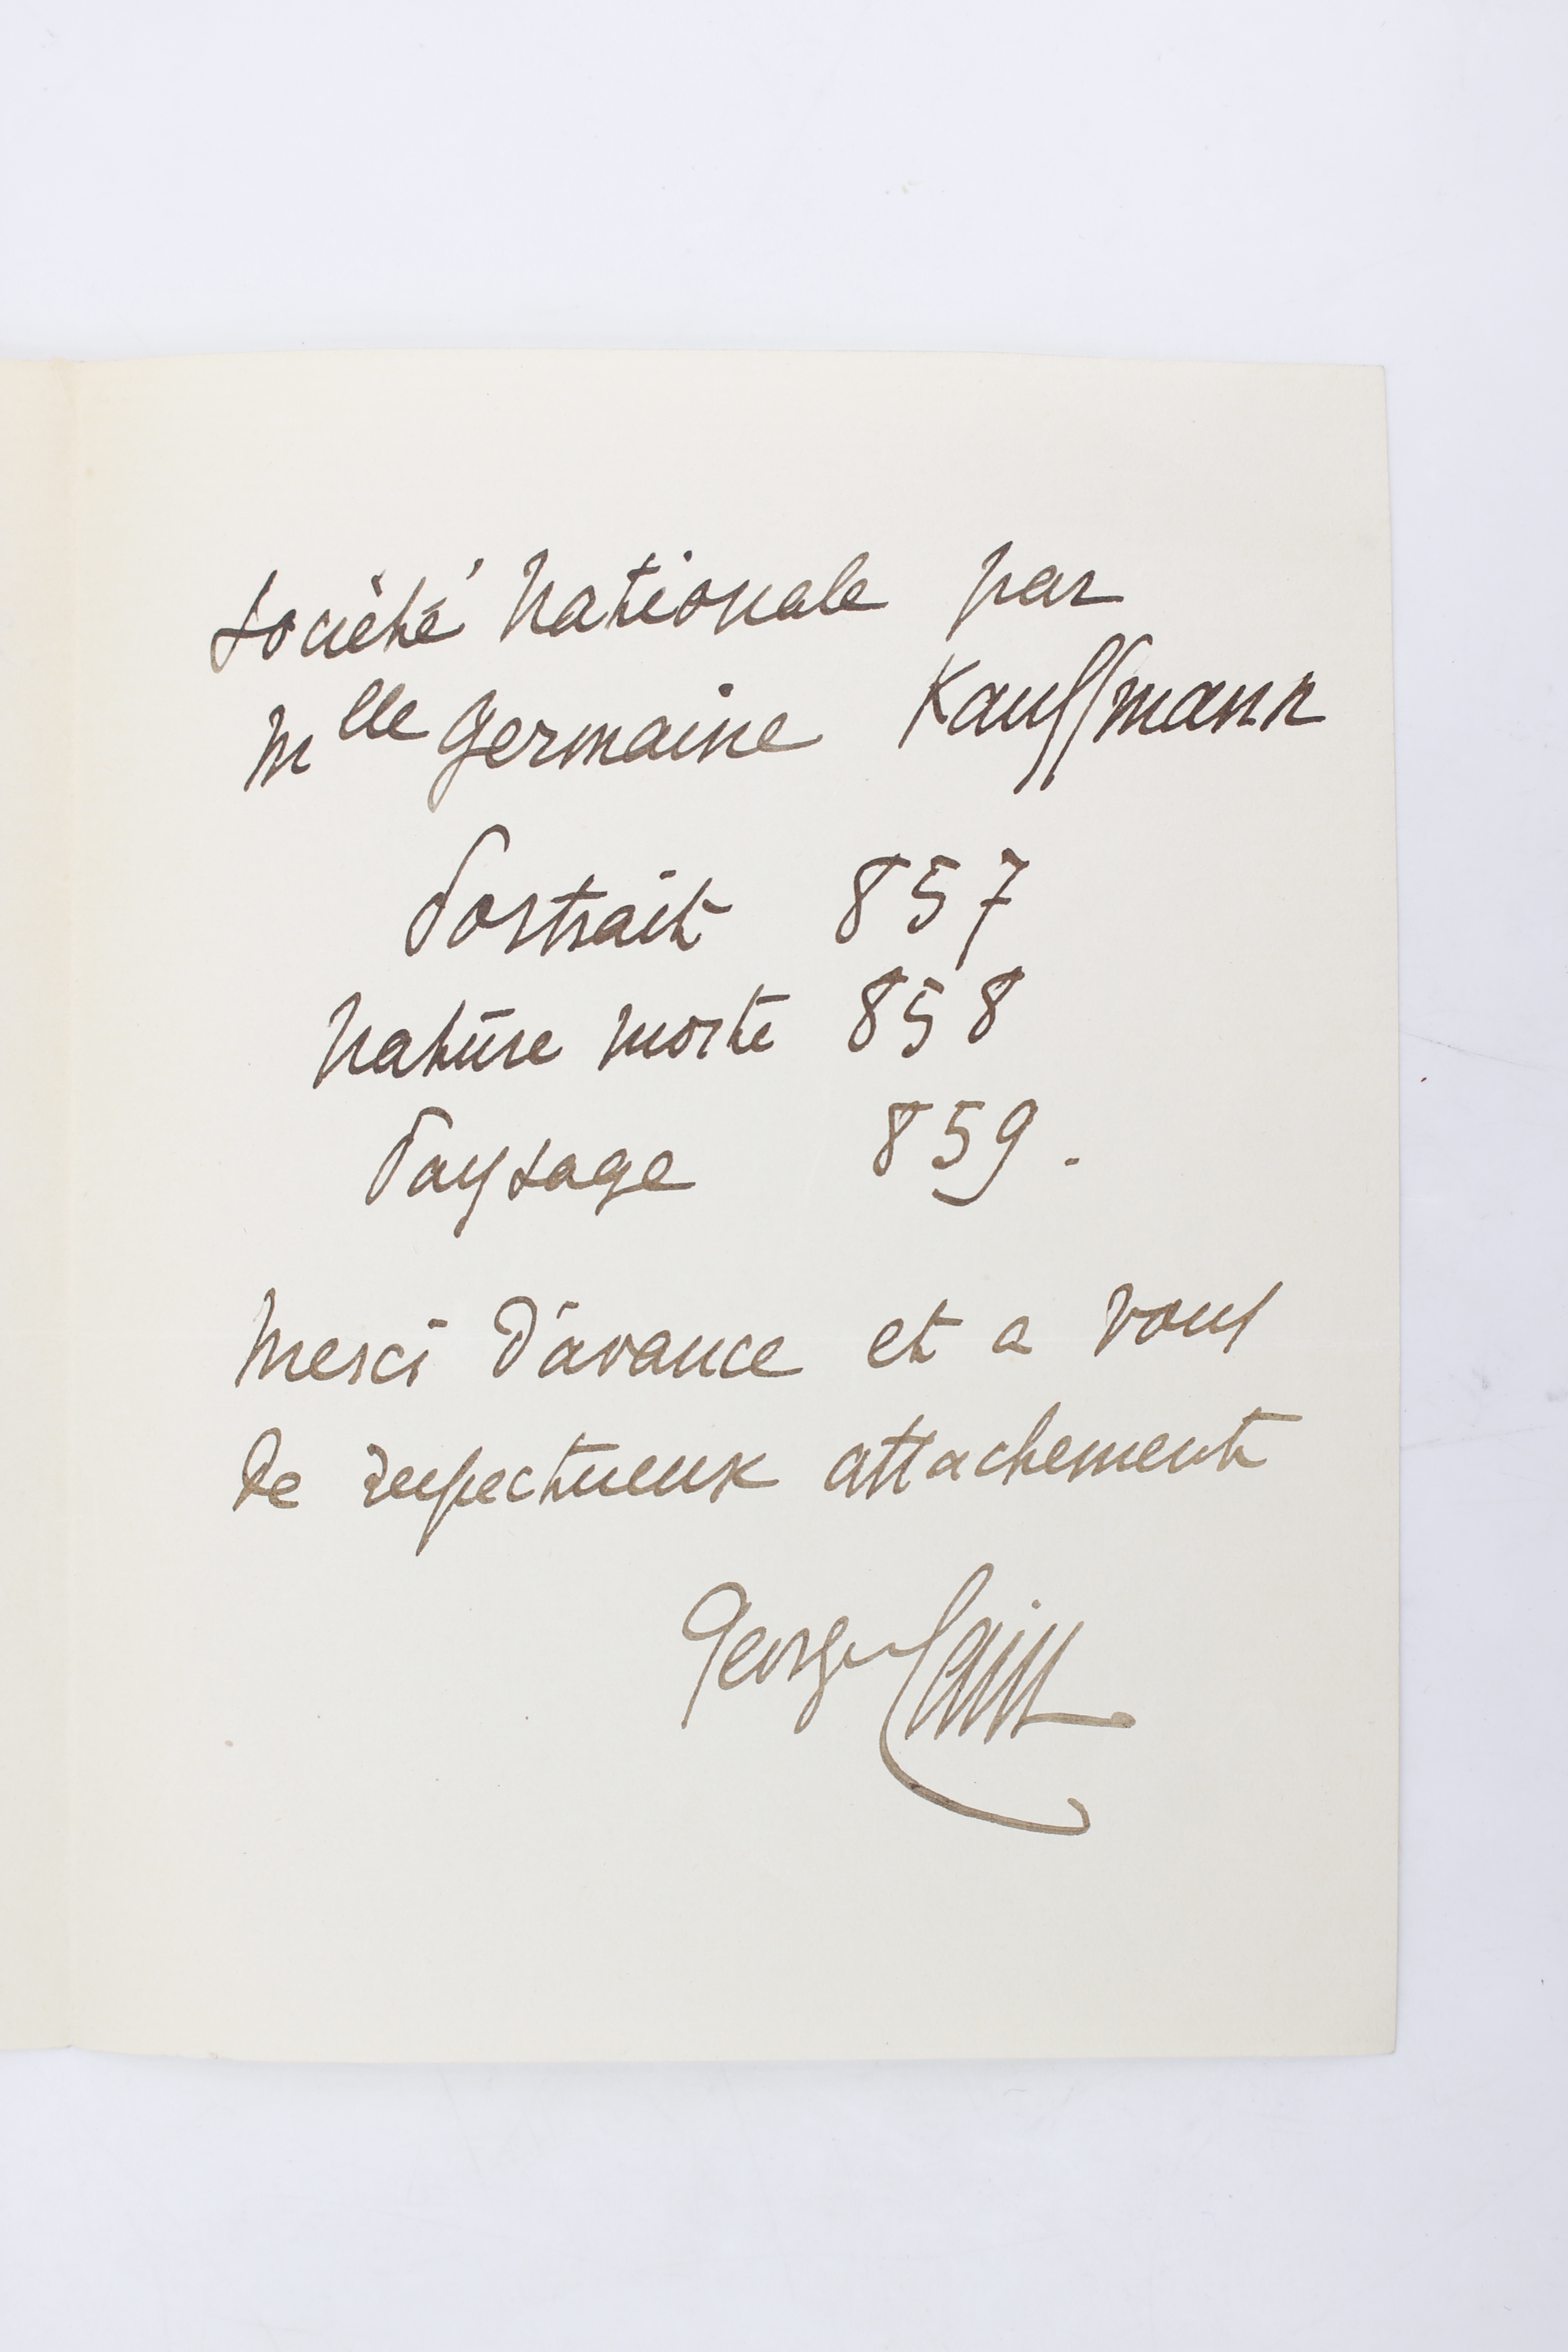 Société Nationale par
Mlle Germaine Kauffmann
Portrait 857
Nature morte 858
Paysage 859.
Merci d'avance et a vous
de respectueux attachement
Georges Cain